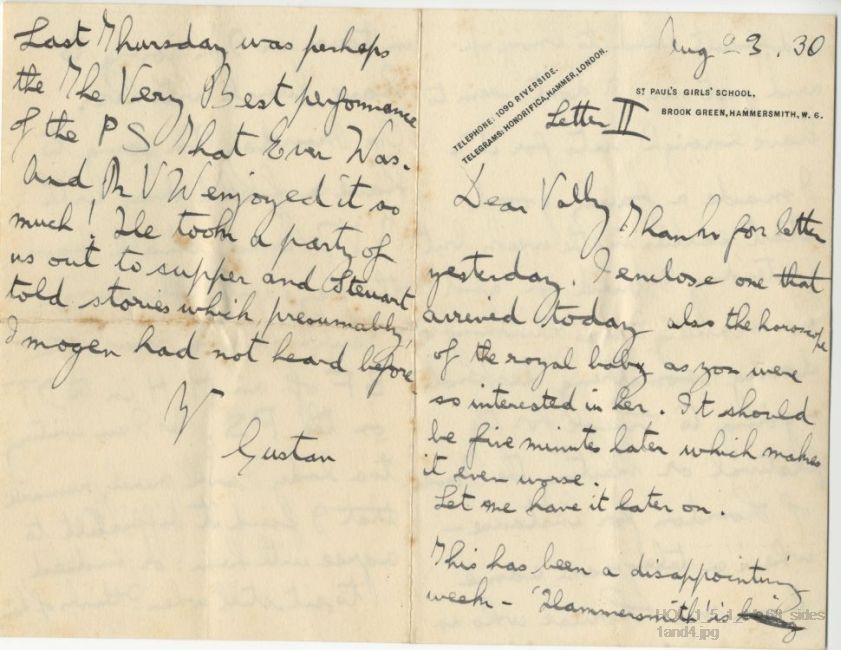 Aug 23. 30
TELEPHONE: 1090 RIVERSIDE.
TELEGRAMS: HONORIFICA, HAMMER, LONDON.
Letter II
ST PAUL'S GIRLS' SCHOOL,
BROOK GREEN, HAMMERSMITH, W. 6.
Dear Vally Thanks for letter
yesterday. I enclose one that
arrived today also the horoscope
of the royal baby as you were
so interested in her. It should
be five minutes later which makes
it even worse.
Let me have it later on.
This has been a disappointing
week - 'Hammersmith' is
Last Thursday was perhaps
the The Very Best performance
of the P S That Ever Was.
And Dr V W enjoyed it so
much! He took a party of
us out to supper and Stewart
told stories which, presumably,
Imogen had not heard before
Y
Gustav
HOL_1_5_1_1_68_sides
1and4.jpg